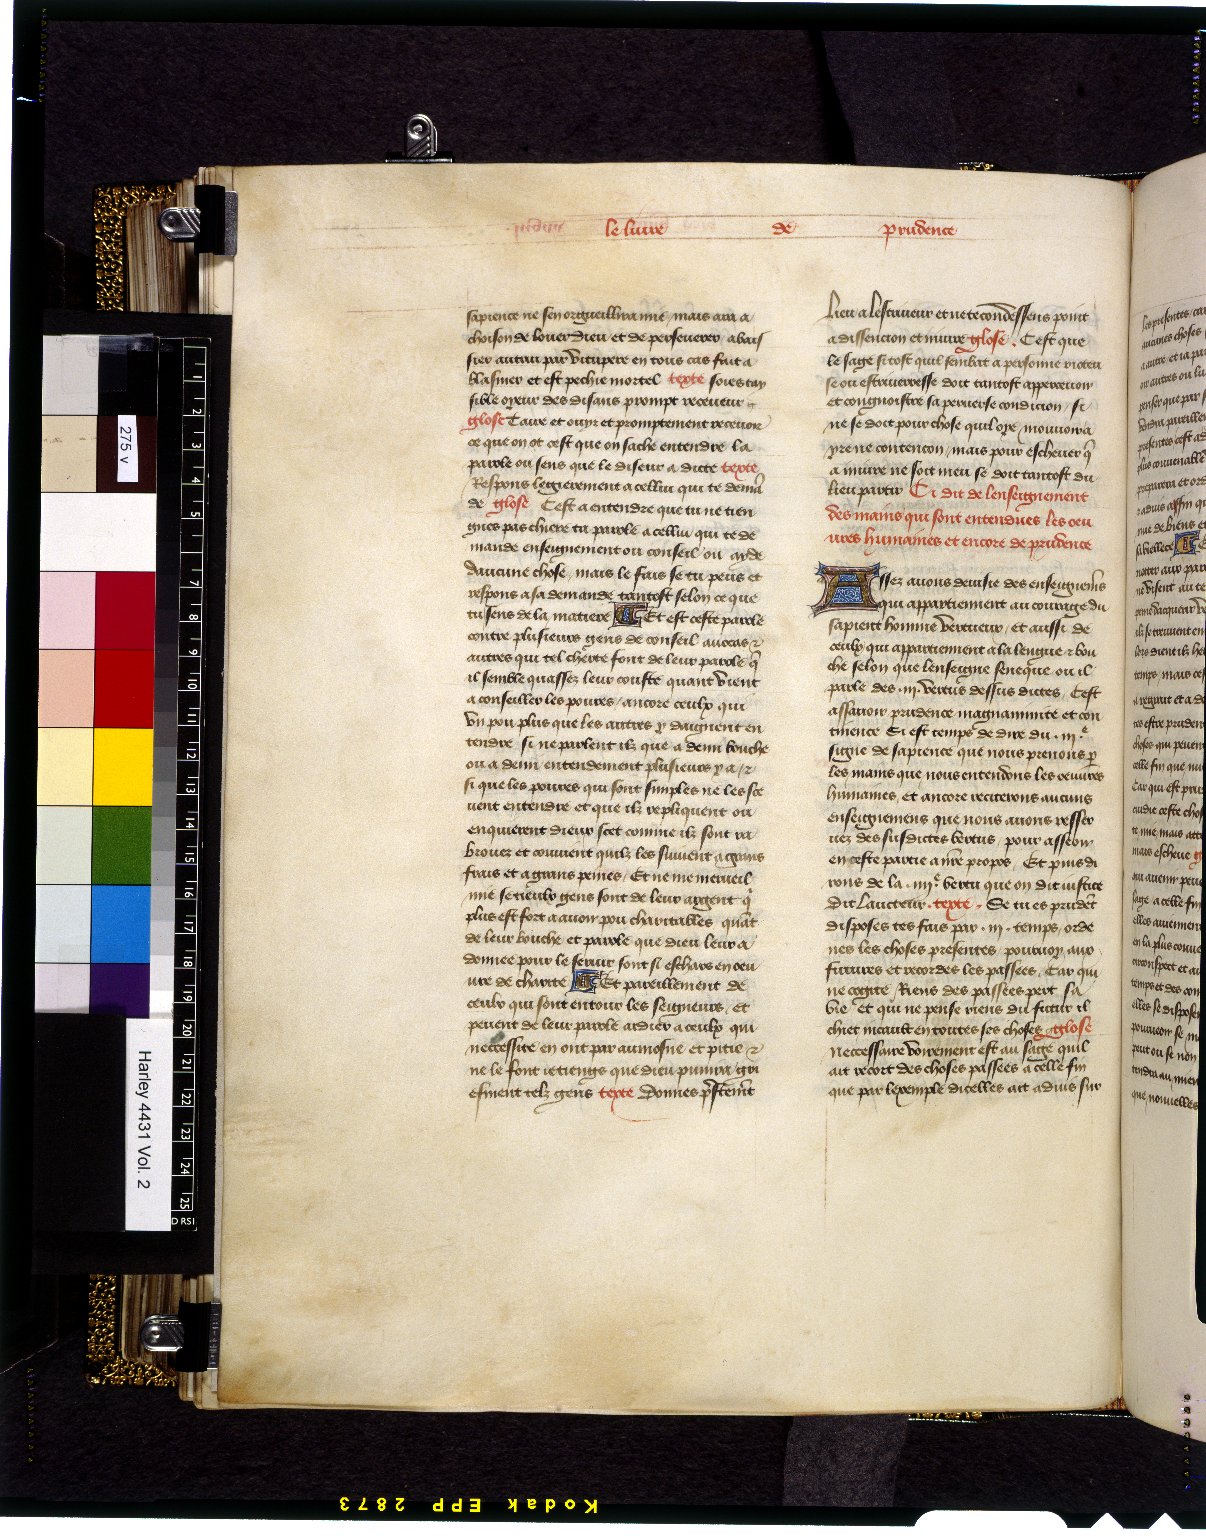 le livre de prudence
sapience ne sen orgueillira mie / mais aura a
choison de louer dieu et de perseverer abais
sier autrui par vitupere en tous cas fait a
blasmer et est pechie mortel texte soies tay
sible oyeur des disans prompt receveur
glose Taire et ouyr et promptement recevoir
ce que on ot cest que on sache entendre la
parole ou sens que le diseur a dicte texte
Respons legierement a cellui qui te demā
de glose Cest a entendre que tu ne tien
gnes pas chiere ta parole a cellui qui te de
mande enseignement ou conseil ou ayde
daucune chose / mais le fais se tu peus et
respons a sa demande tantost selon ce que
tu sens de la matiere Et est ceste parole
contre plusieurs gens de conseil avocas &
autres qui tel chierte font de leur parole q̄
il semble quassez leur couste quant vient
a conseiller les povres / ancore ceulx qui
vn pou plus que les autres y daignent en
tendre si ne parlent ilz que a demi bouche
ou a demi entendement plusieurs y a / &
si que les povres qui sont simples ne les sce
vent entendre et que ilz repliquent ou
enquierent dieux scet comme ilz sont ra
brouez et couvient quilz les suivent a grans
frais et a grans peines / Et ne me merveil
mie se ticulx gens sont de leur argent q̄
plus est fort a avoir pou charitables quāt
de leur bouche et parole que dieu leur a
donnee pour le servir sont si eschars en oeu
vre de charite Et pareillement de
ceulx qui sont entour les seigneurs et
pevent de leur parole aidier a ceulx qui
neccessite en ont par aumosne et pitie &
ne le font
que dieu punira gri
efment telz gens texte Donnes
lieu a lestriveur et ne te condessens point
a dissencion et injure glose . Cest que
le sage si tost quil sembat a personne rioteu
se ou estriverresse doit tantost appercevoir
et congnoistre sa perverse condicion / si
ne se doit pour chose quil oye mouvoir a
yre ne contencon / mais pour eschever q̄
a injure ne soit meu se doit tantost du
lieu partir Ci dit de lenseignement
des mains qui sont entendues les oeu
vres humaines et encore de prudence
Assez avons devisie des enseignemēs
qui appartiennent au courage du
sapient homme vertueux / et aussi de
ceulx qui appartiennent a la lengue & bou
che selon que lenseigne seneque / ou il
parle des .iij. vertus dessus dictes / Cest
assavoir prudence magnanimite et con
tinence Si est temps de dire du .iij.e
signe de sapience que nous prenons p̄
les mains que nous entendons les oeuvres
humaines, et ancore reciterons aucuns
enseignemens que nous avons resser
vez des susdictes vertus / pour asseoir
en ceste partie a nr̄e propos / Et puis di
rons de la .iiij.e vertu que on dit justice
Dit lautteur . texte . Se tu es prudēt
disposes tes fais par .iij. temps / orde
nes les choses presentes / pourvoy aux
futures et recordes les passees, Car qui
ne cogite Riens des passees pert sa
vie et qui ne pense riens du futur il
chiet incault en toutes ses choses glose
Neccessaire voirement est au sage quil
ait recort des choses passees a celle fin
que par lexemple dicelles ait advis sur
275 v
Harley 4431 Vol. 2
Kodak EPP 2873